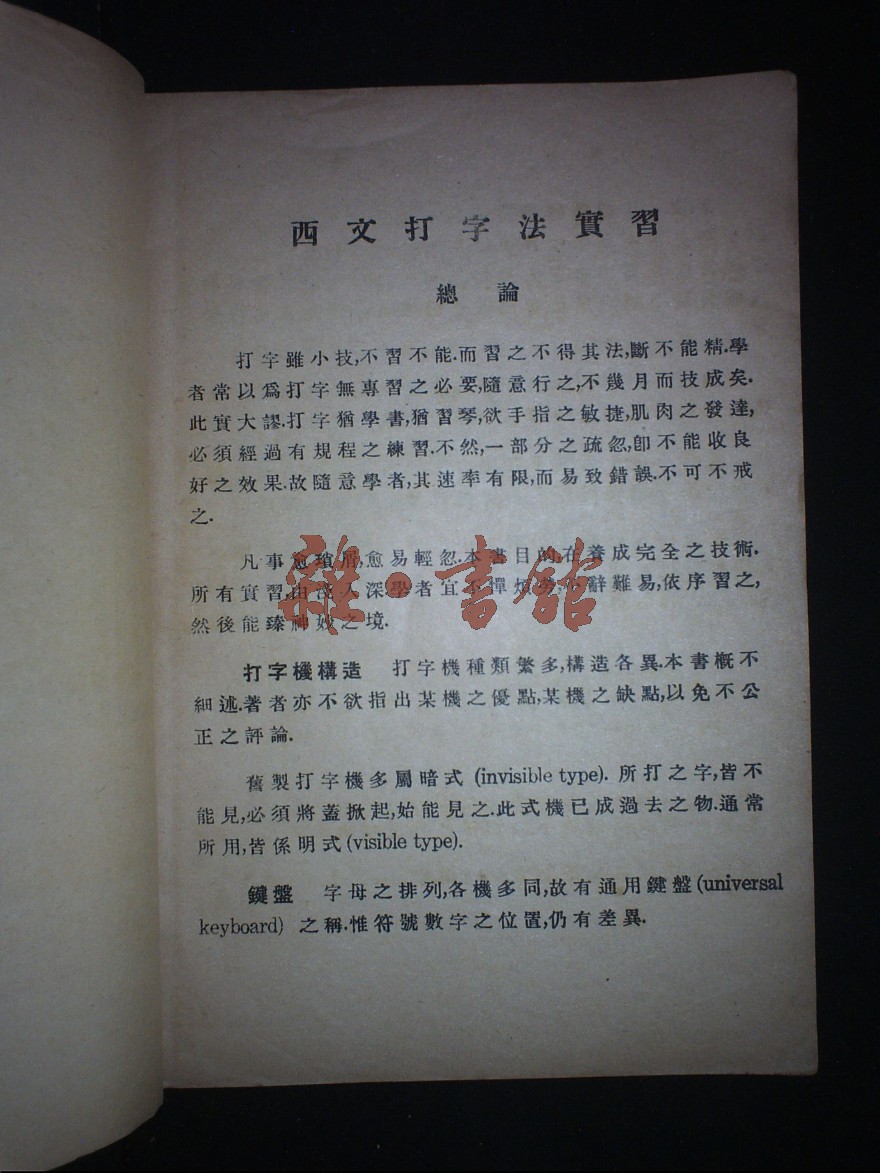 西文打字法實習
總論
打字雖小技,不習不能.而習之不得其法,斷不能精.學
者常以爲打字無專習之必要,隨意行之,不幾月而技成矣.
此實大謬.打字猶學書,猶習琴,欲手指之敏捷,肌肉之發達,
必須經過有規程之練習.不然,一部分之疏忽,卽不能收良
好之效果.故隨意學者,其速率有限,而易致錯誤.不可不戒
之.
凡事愈瑣屑,愈易輕忽.本書目的,在養成完全之技術.
所有實習,由淺入深.學者宜不憚煩勞,不辭難易,依序習之,
然後能臻神妙之境.
雜·書館
打字機構造 打字機種類繁多,構造各異.本書概不
細述.著者亦不欲指出某機之優點,某機之缺點,以免不公
正之評論.
舊製打字機多屬暗式 (invisible type). 所打之字,皆不
能見,必須將蓋掀起,始能見之.此式機已成過去之物.通常
所用,皆係明式 (visible type).
鍵盤 字母之排列,各機多同,故有通用鍵盤 (universal
keyboard) 之稱.惟符號數字之位置,仍有差異.